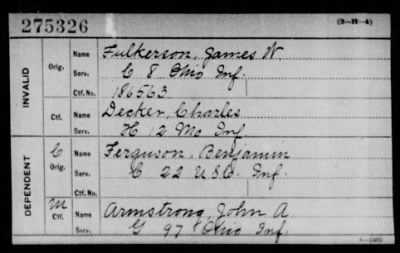 275326 (3-H-4)
INVALID
Orig. Name Fulkerson, James W.
Serv. C 8 Ohio Inf.
Ctf. No. 186563.
Ctf. Name Decker, Charles
Serv. H 12 Mo Inf.
DEPENDENT
C Orig. Name Ferguson, Benjamin
Serv. C 22 U.S.C. Inf.
Ctf. No.
M Ctf. Name Armstrong, John A.
Serv. G 97 Ohio Inf.